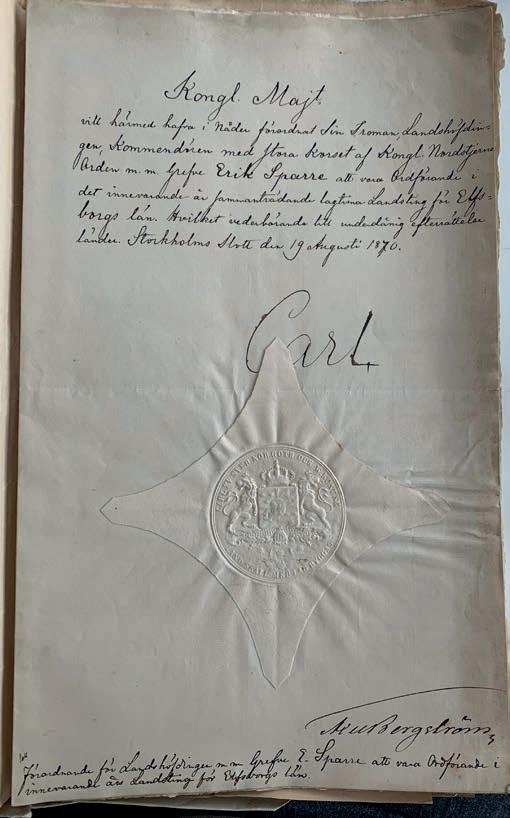 Kongl. Majt
vill härmed hafva i Nåder förordnat Sin Troman, Landshöfdin-
gen, Kommendören med stora Korset af Kongl. Nordstjerne
Orden m. m. Grefve Erik Sparre att vara Ordförande i
det innevarande år sammanträdande lagtima Landsting för Elfs-
borgs län. Hvilket vederbörande till underdånig efterrättelse
länder. Stockholms Slott den 19 Augusti 1870.
Carl
Bergström
Förordnande för Landshöfdingen m m Grefve E. Sparre att vara Ordförande i
innevarande års Landsting för Elfsborgs län.